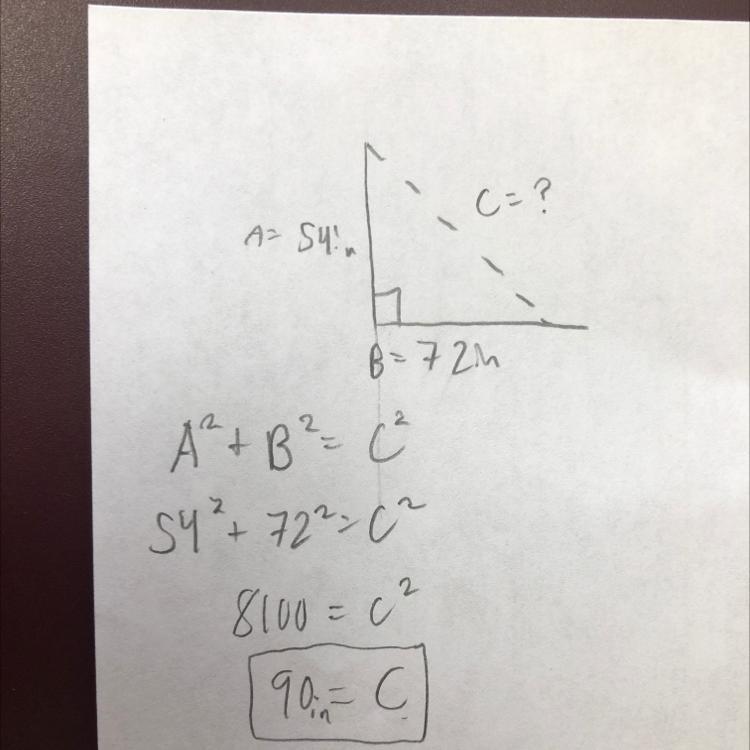 C = ?
A = 54in
B = 72in
A² + B² = C²
54² + 72² = C²
8100 = C²
90in = C